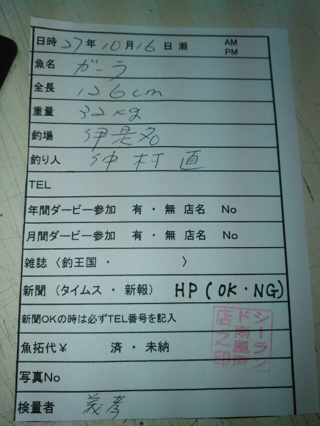 日時 27年 10月 16日 潮 AM
PM
魚名 ガーラ
全長 126cm
重量 32kg
釣場 伊是名
釣り人 仲村 直
TEL
年間ダービー参加 有・無 店名 No
月間ダービー参加 有・無 店名 No
雑誌〈釣王国・ 〉
新聞(タイムス・新報) HP(OK・NG)
新聞OKの時は必ずTEL番号を記入
魚拓代¥ 済・未納
写真No
検量者